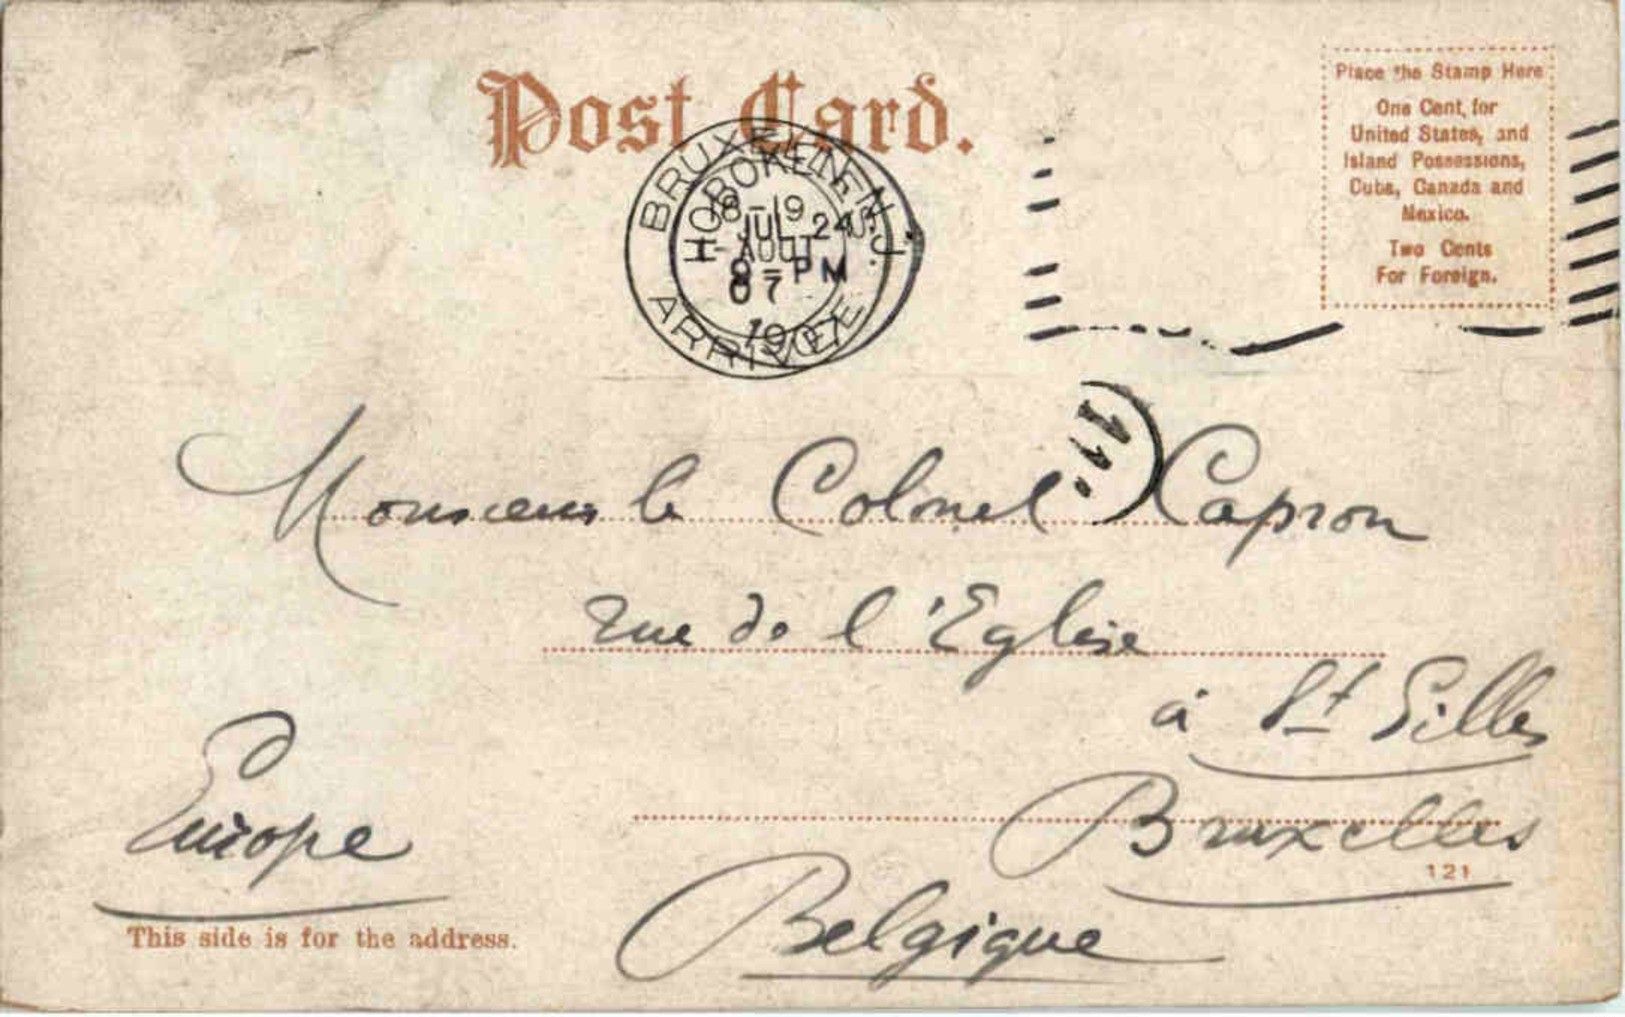 Post Card.
Place the Stamp Here
One Cent, for
United States, and
Island Possessions,
Cuba, Canada and
Mexico.
Two Cents
For Foreign.
BRUXELLES
HOBOKEN, N.J.
18-19
JUL 24
1- AOUT
8- PM
07
1907
ARRIVÉE
11
Monsieur le Colonel Capron
rue de l'Eglise
à St Gilles
Bruxelles
Europe
121
Belgique
This side is for the address.